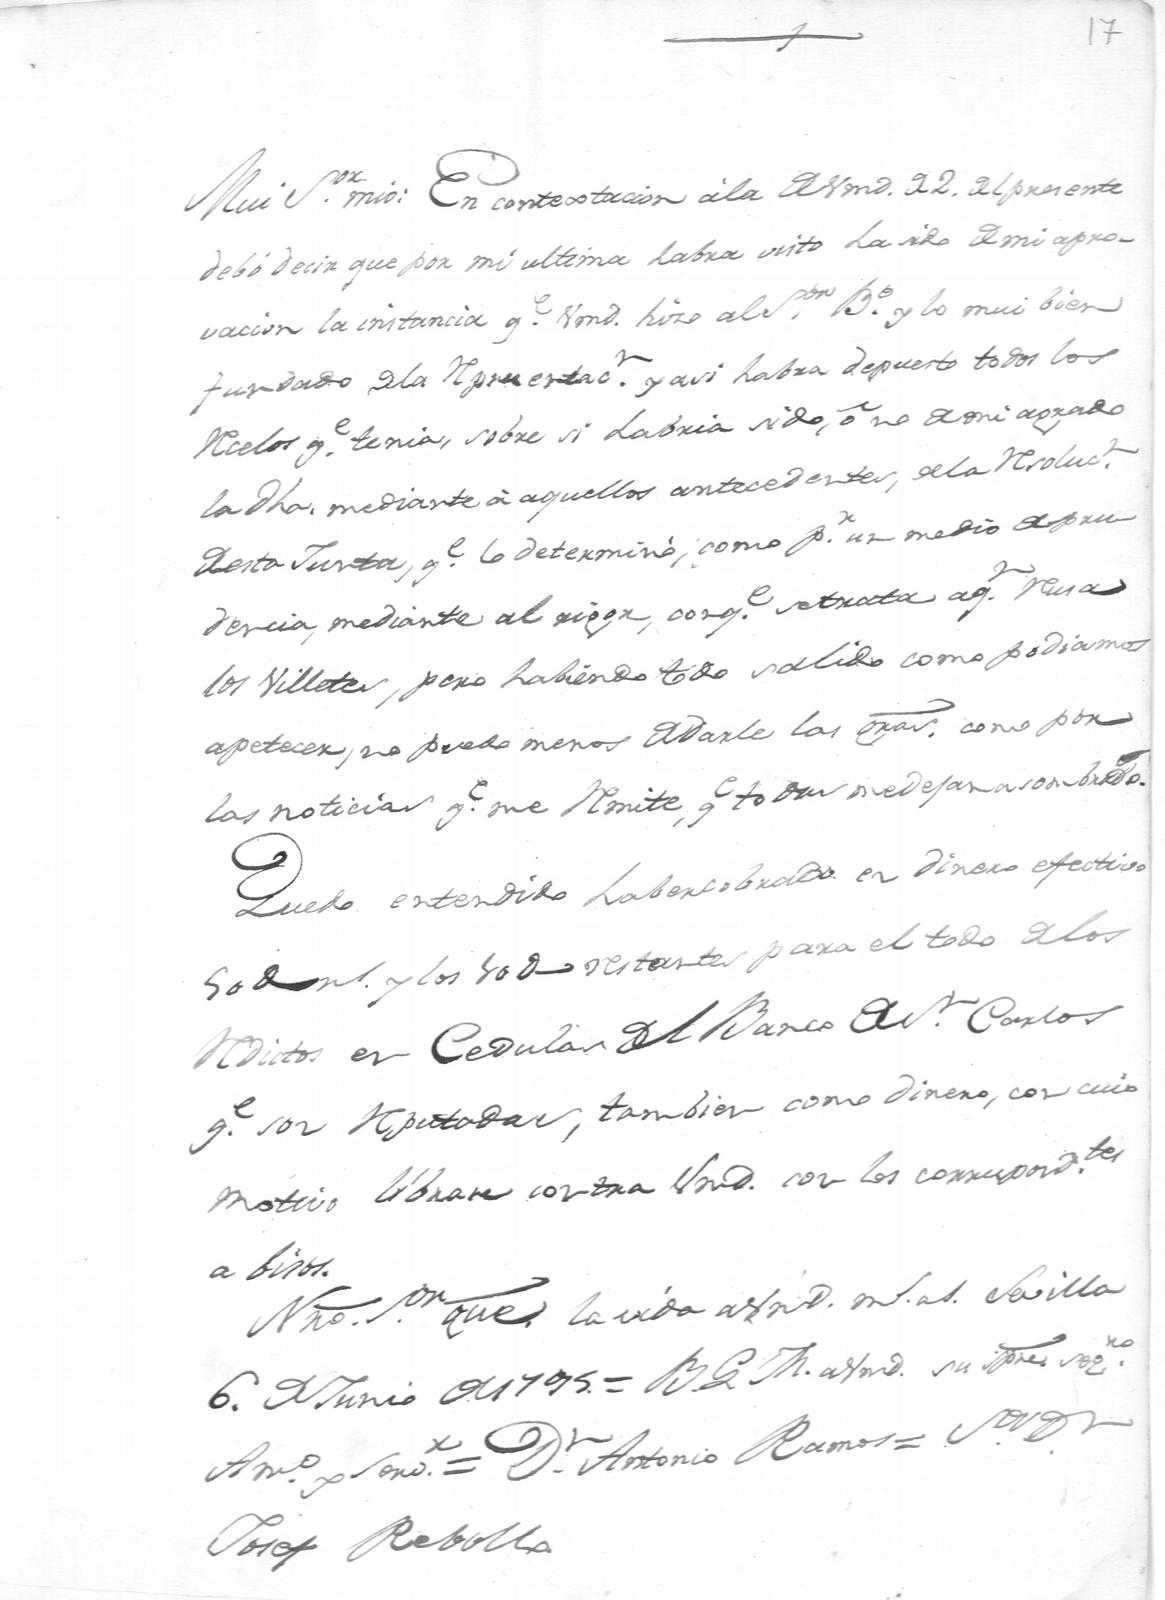 17
Mui S.or mio: En contextacion á la de Vmd. de 2. del presente
debó decir que por mi ultima habra visto ha sido de mi apro-
vacion la instancia q.e Vmd. hizo al S.or B.o y lo mui bien
fundado de la Rpresentac.n y asi habra depuesto todos los
Rcelos q.e tenia, sobre si habria sido, ó no de mi agrado
la dha. mediante á aquellos antecedentes, de la Rsoluc.n
de esta Junta, q.e lo determinó, como p.r un medio de pru
dencia, mediante al rigor, con q.e se trata aq.n Rusa
los Villetes, pero habiendo todo salido como podiamos
apetecer, no puedo menos de darle las gras. como por
las noticias q.e me Rmite, q.e todas me dejan asombrado.
Quedo entendido haber cobrado en dinero efectivo
rs. y los restantes para el todo de los
Rditos en Cedulas del Banco de S.n Carlos
q.e son Rputadas, tambien como dinero, con cuio
motivo librare contra Vmd. con los correspond.tes
abisos.
Nro. S.or gue. la vida de Vmd. ms. as. Sevilla
6. de Junio de 1795. = B. L. M. de Vmd. su seg.ro
Am.o y Serv.r = D.n Antonio Ramos = S.or D.n
Josef Rebollo